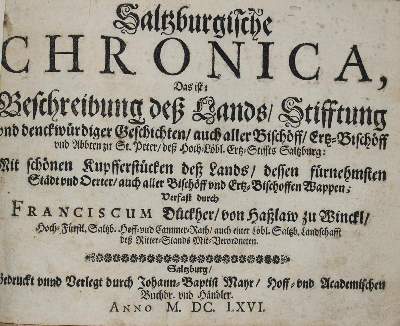 Saltzburgische
CHRONICA,
Das ist:
Beschreibung deß Lands/ Stifftung
vnd denckwürdiger Geschichten/ auch aller Bischöff/ Ertz-Bischöff
vnd Abbten zu St. Peter/ deß Hoch-Löbl. Ertz-Stiffts Saltzburg:
Mit schönen Kupfferstücken deß Lands/ dessen fürnehmsten
Städt vnd Oerter/ auch aller Bischöff vnd Ertz-Bischoffen Wappen;
Verfast durch
FRANCISCUM Dückher/ von Haßlaw zu Winckl/
Hoch-Fürstl. Saltzb. Hoff- vnd Cammer-Rath/ auch einer Löbl. Saltzb. Landschafft
deß Ritter-Stands Mit-Verordneten.
Saltzburg/
Gedruckt vnnd Verlegt durch Johann-Baptist Mayr/ Hoff- vnd Academischen
Buchdr. vnd Händler.
ANNO M. DC. LXVI.